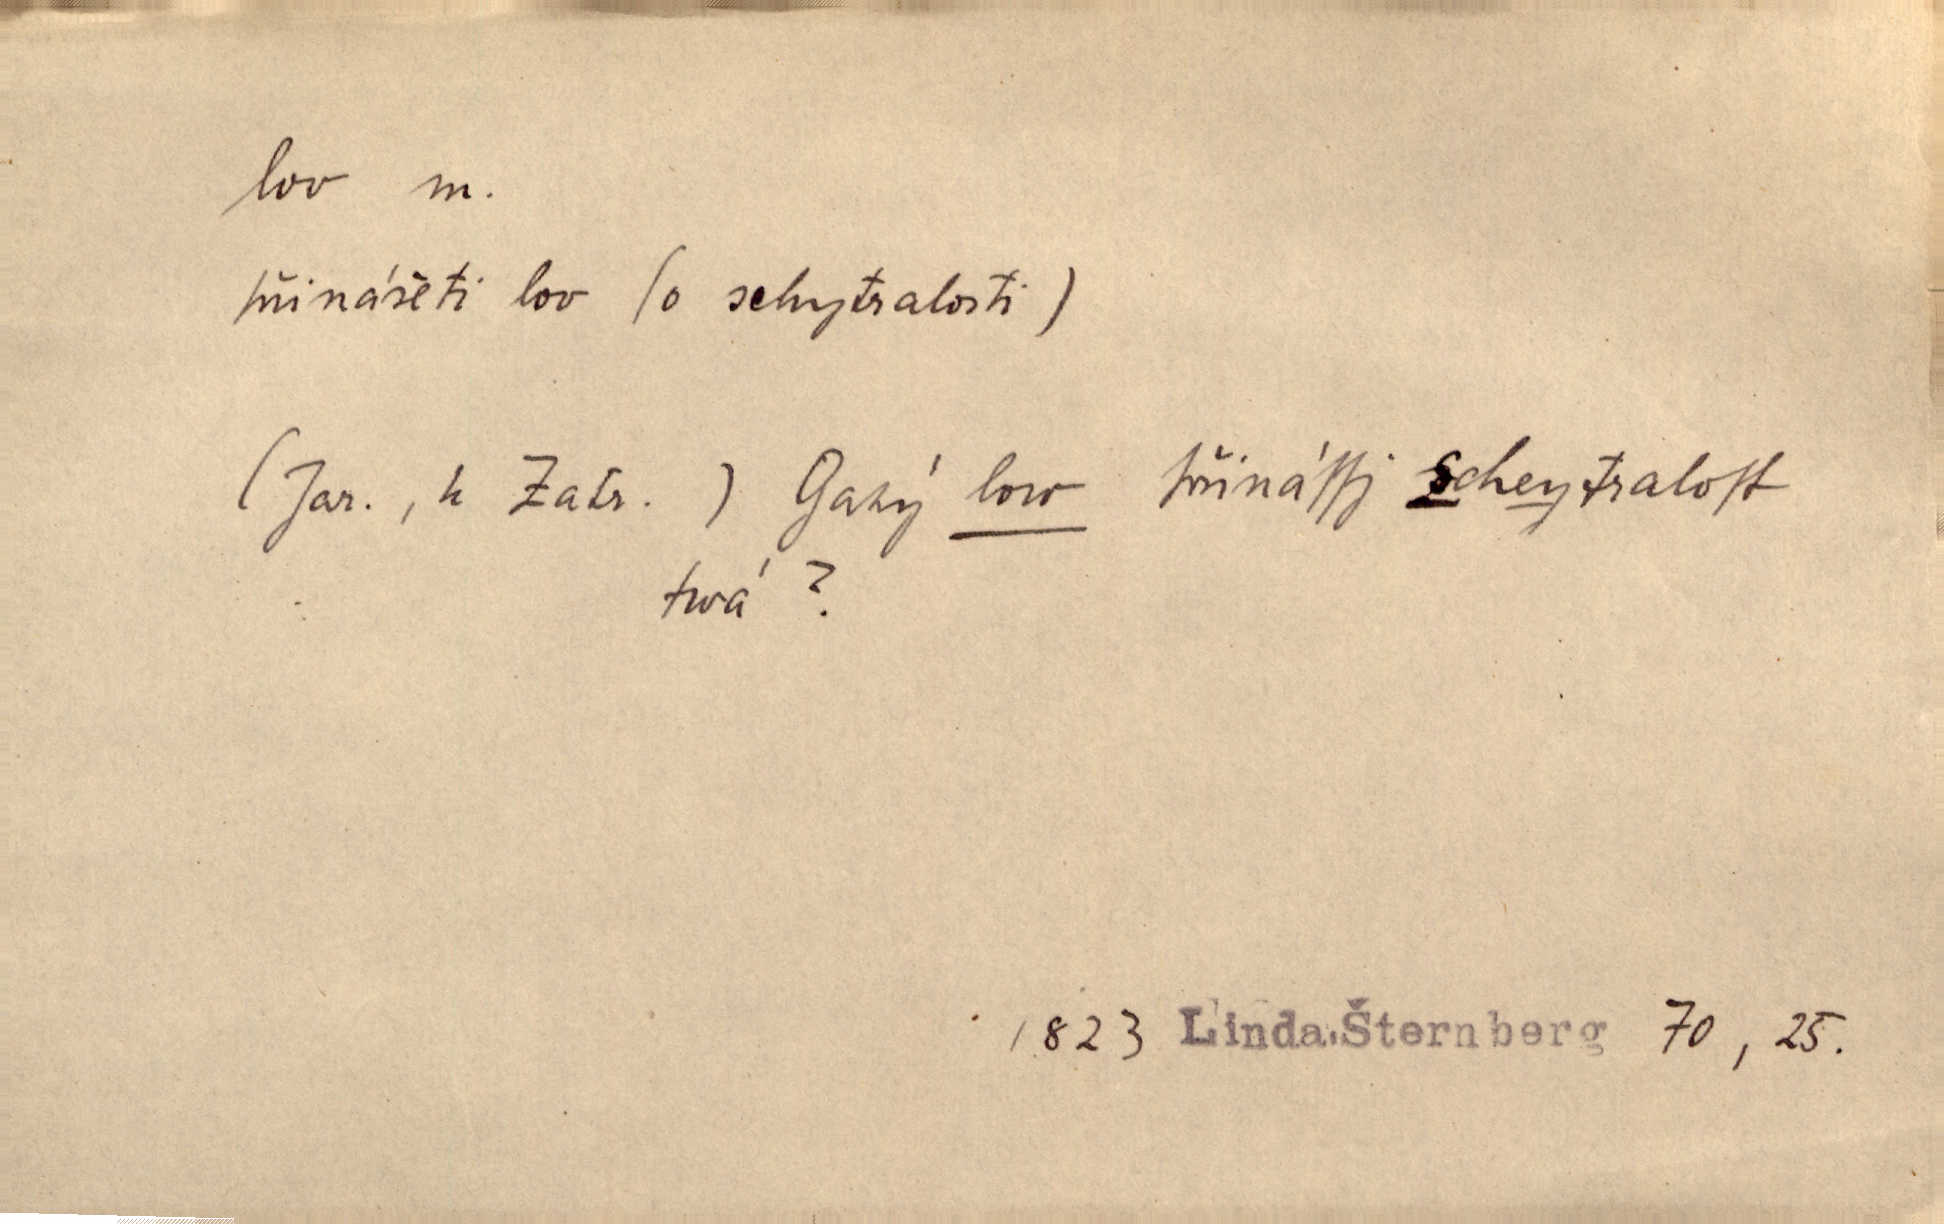 lov m.
přinášeti lov (o schytralosti)
(Jar., k Zatr. ) Gaký low přinássj Scheytralost
twá ?
1823 Linda,Šternberg 70, 25.